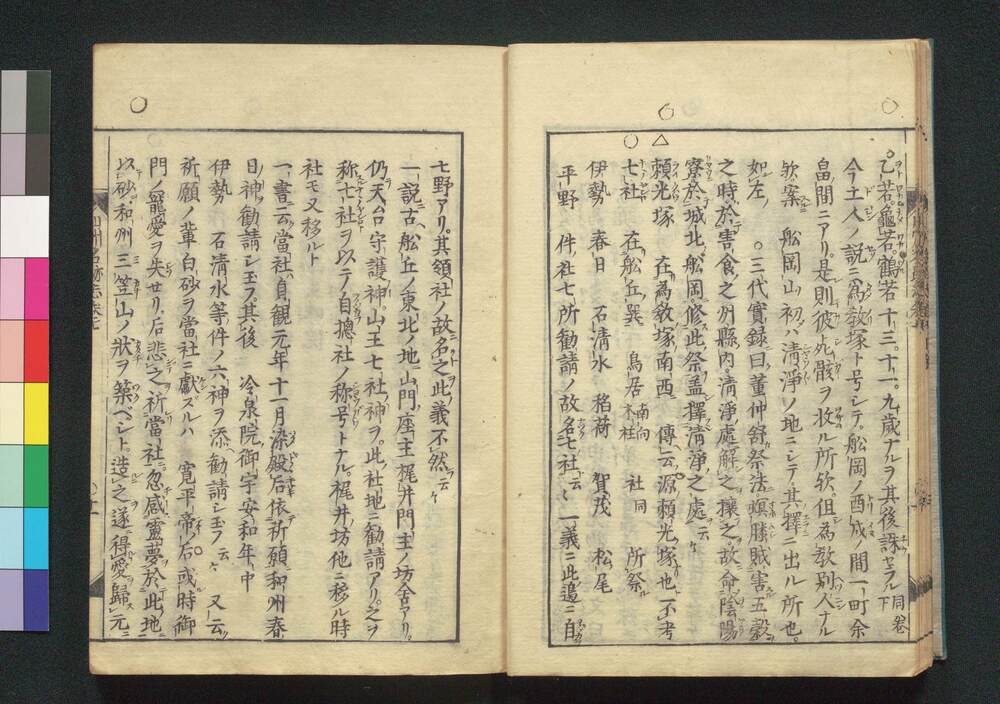 乙若龜若鶴若十三。十一。九歳ナルヲ其後誅セラル同卷下
今土人ノ説ニ為教塚ト号シテ舩岡ノ酉戌ノ間一町余
畠間ニアリ。是則彼死骸ヲ收ル所欤。但為教別人ナル
欤案スルニ舩岡山初ハ清淨ノ地ニシテ其擇ニ出ル所也。
如左ノ ○三代實録曰董仲舒祭法螟螣賊害五穀
之時於害食之州縣内清淨處解之攘之故命陰陽
寮於城北舩岡修此祭盖擇清淨之處云々
△頼光塚 在為教塚南西 傳云源頼光塚也不考
○七社 在舩丘巽 鳥居南向木柱 社同 所祭
伊勢 春日 石清水 稲荷 賀茂 松尾
平野 件社七所勧請ノ故名七社云々一義ニ此邉ニ自
七野アリ。其領社ノ故名之此義不然云々
一説古ヘ舩丘ノ東北ノ地山門座主梶井門主ノ坊舎アリ。
仍天台守護神山王七社神ヲ。此社地ニ勧請アリ。之ヲ
称七社ヲ以テ自摠社ノ称号トナル。梶井坊他ニ移ル時
社モ又移ルト
一書云當社貞観元年十一月染殿后依祈願和州春
日神勧請シ玉フ。其後 冷泉院御宇安和年中
伊勢 石清水等件ノ六神ヲ添勧請シ玉フ云々 又一云
祈願ノ輩白砂ヲ當社ニ獻ズルハ 寛平帝ノ后或時御
門ノ寵愛ヲ失セリ。后悲之祈當社忽感靈夢於此地ニ
以砂和州三笠山ノ狀ヲ築ベシト。造之遂得愛歸元ニ